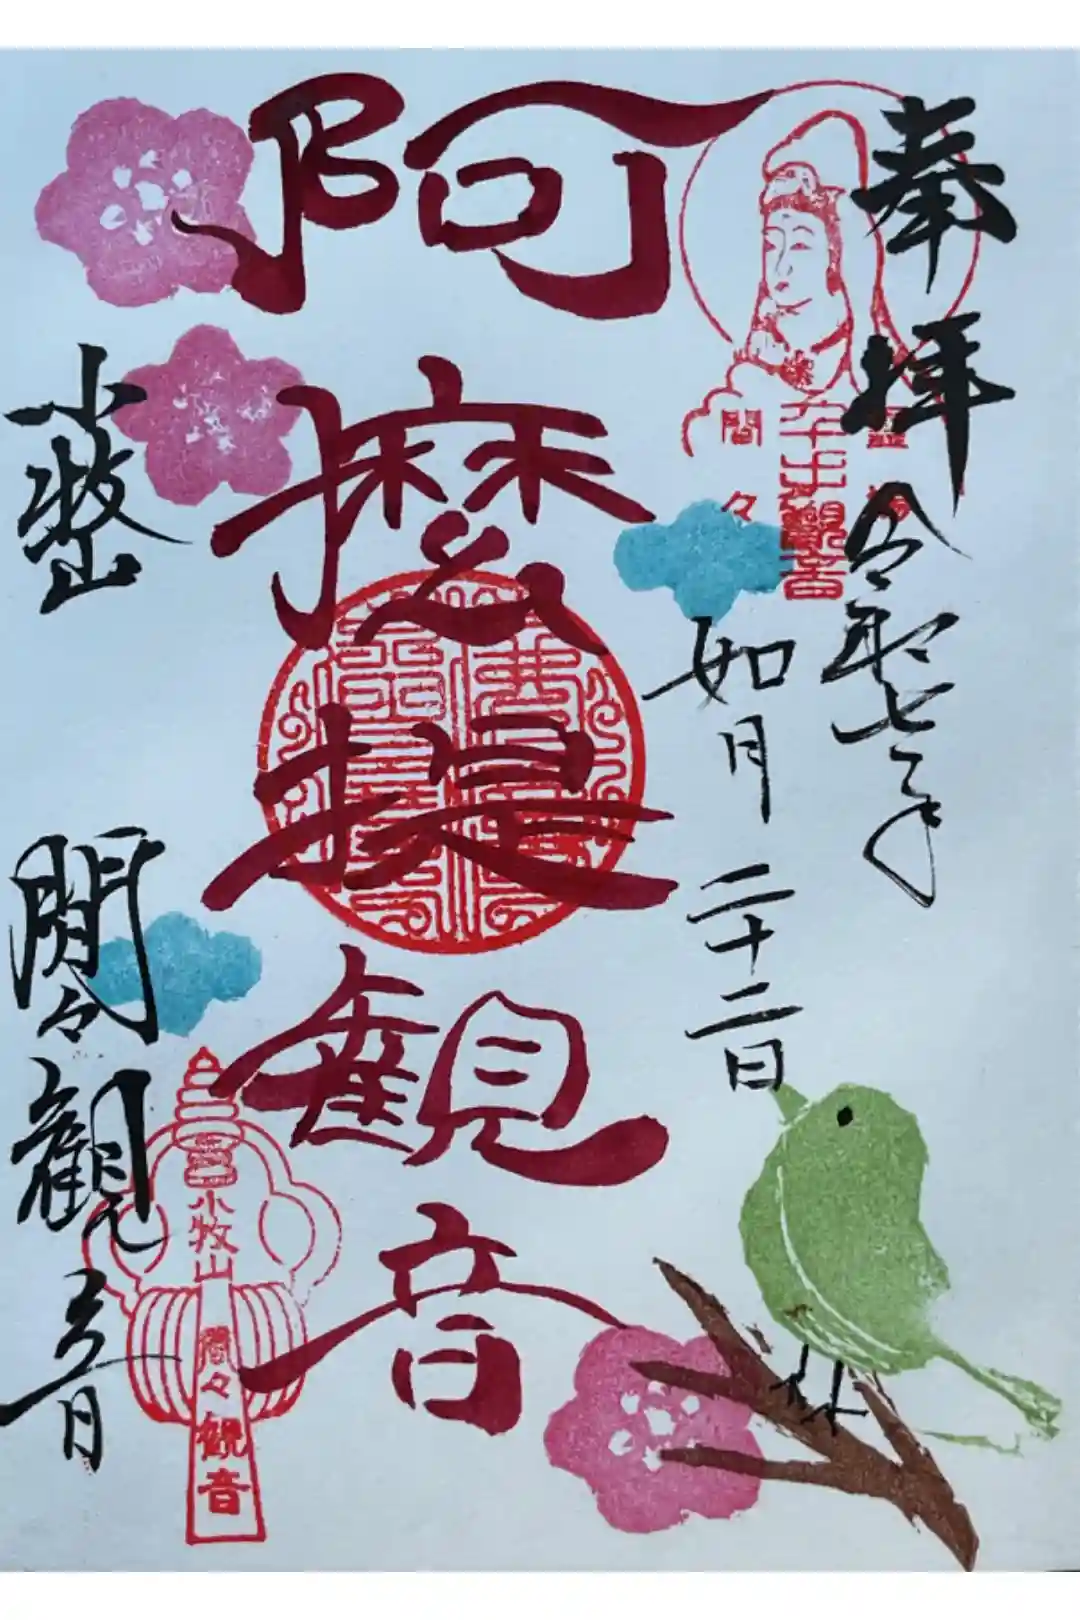 奉拝
令和七年
如月二十二日
阿摩提観音
小牧山
間々観音
間々
千手観音
小牧山
間々観音